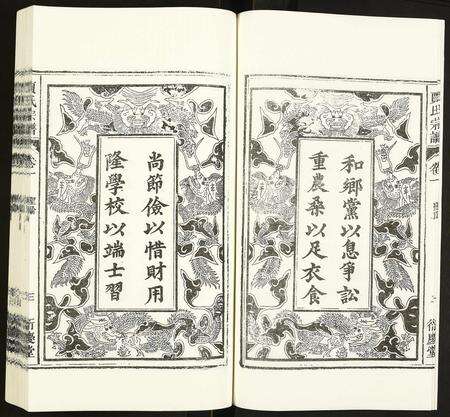 和鄉黨以息爭訟
重農桑以足衣食
尚節儉以惜財用
隆學校以端士習
氏宗譜
卷一
衍慶堂